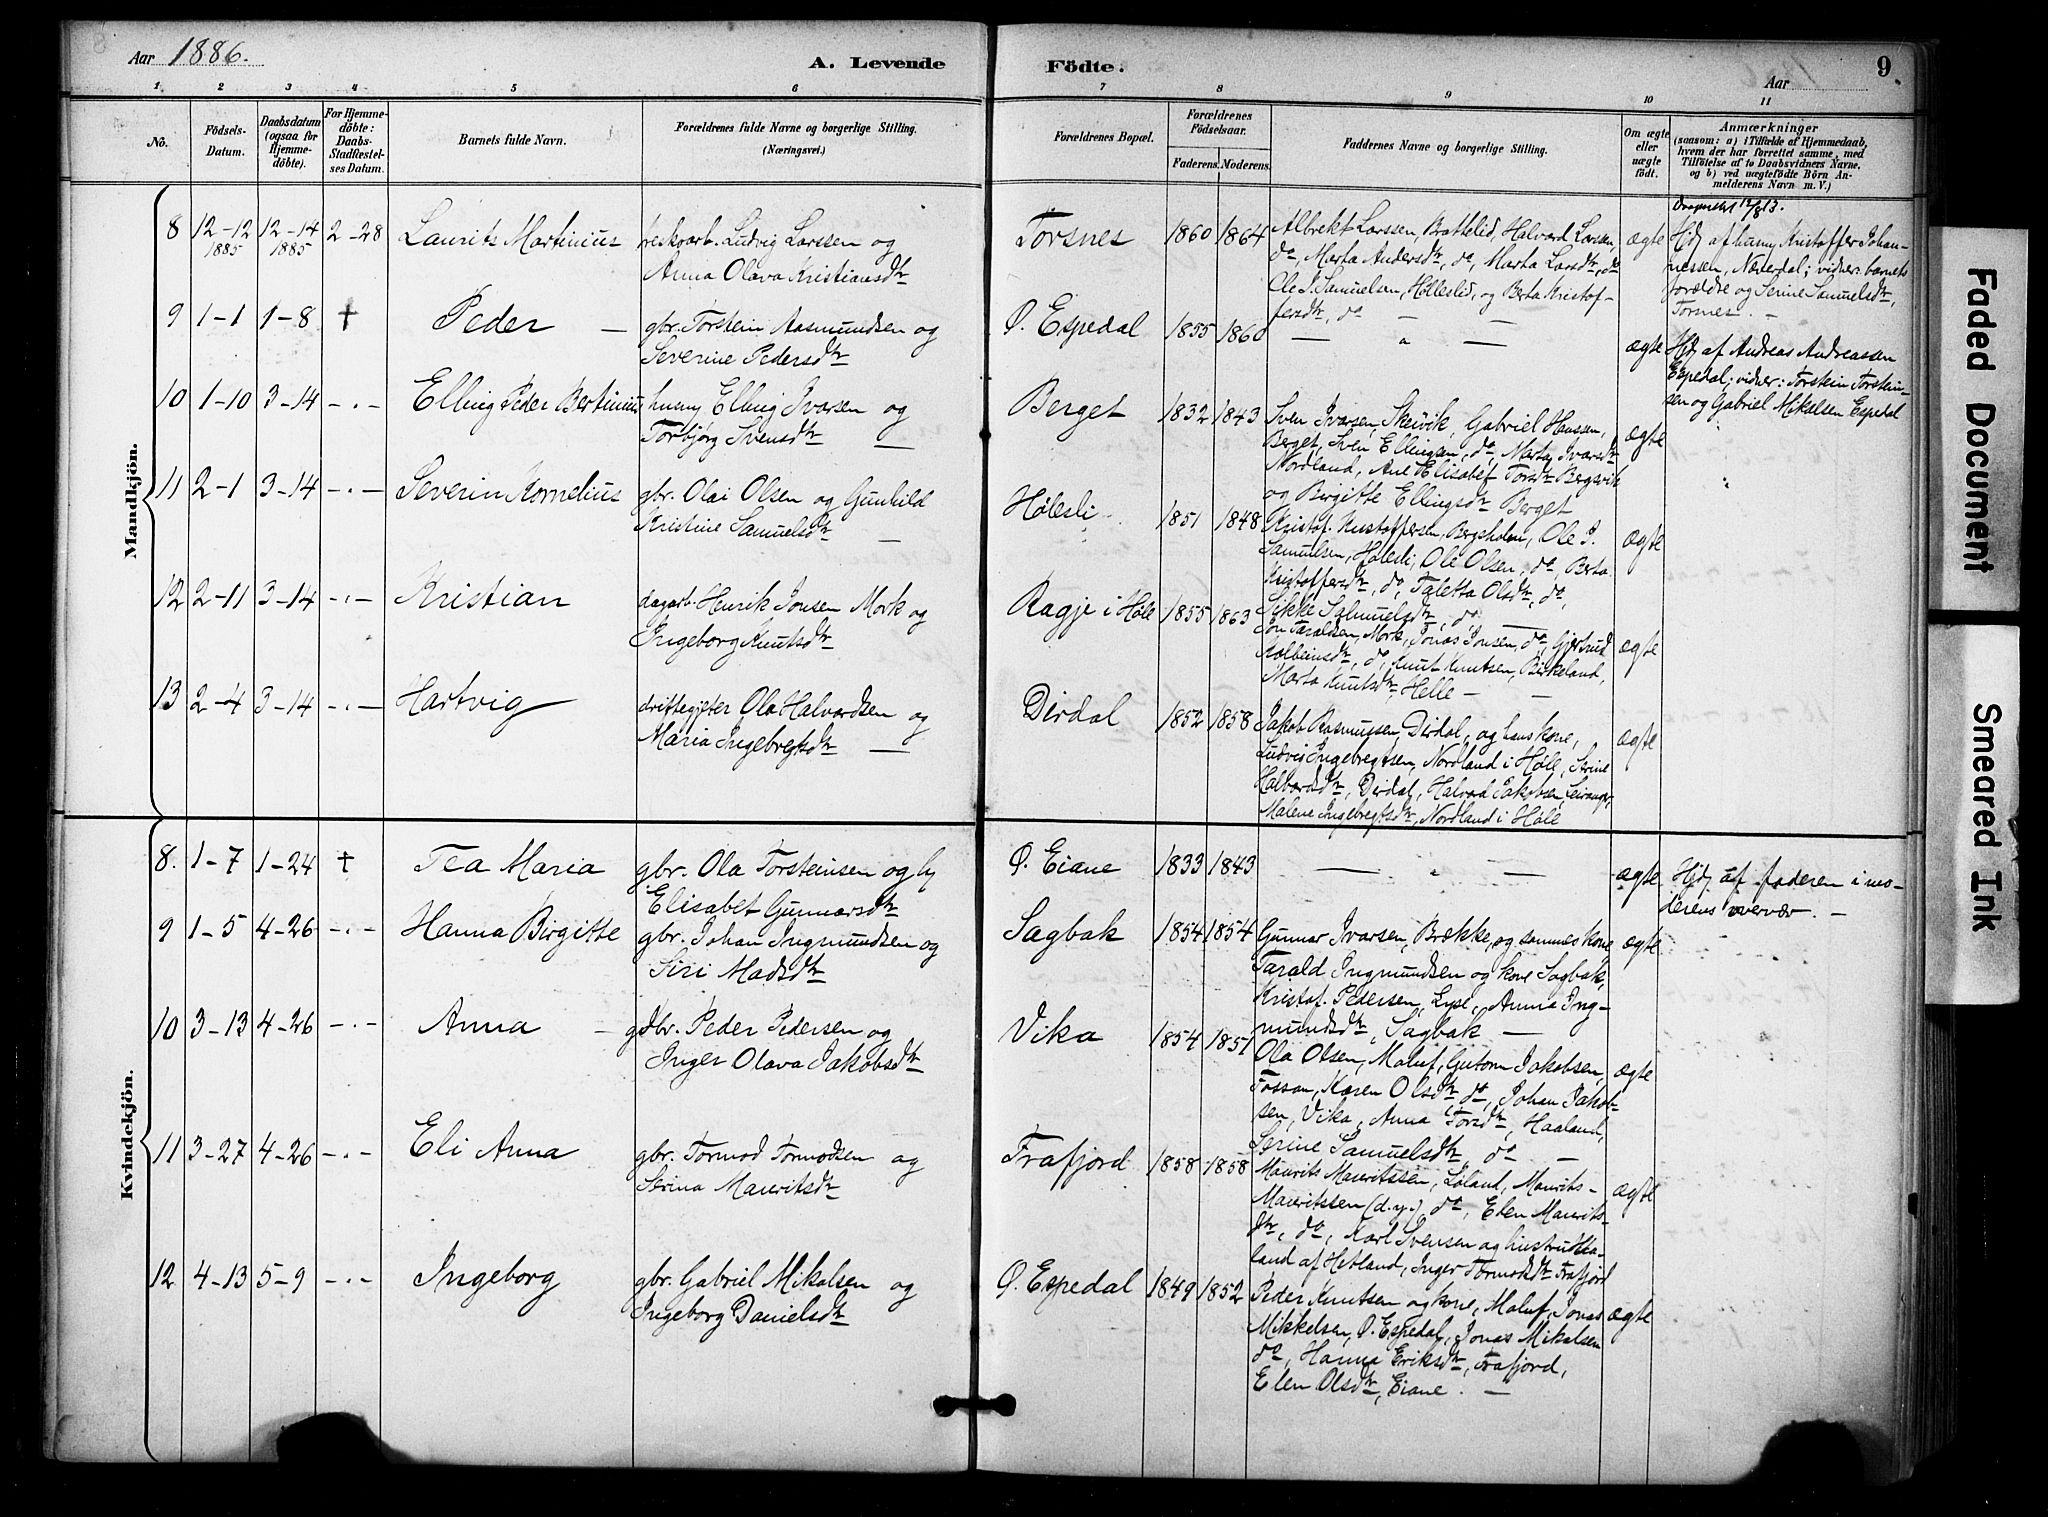 Aar 1886. A. Levende Födte. Aar 9
1 2 3 4 5 6 7 8 9 10 11
No.
Födsels-
Datum.
Daabsdatum
(ogsaa for
Hjemme-
döbte).
For Hjemme-
döbte:
Daabs-
Stadfæstel-
ses Datum.
Barnets fulde Navn.
Forældrenes fulde Navne og borgerlige Stilling.
(Næringsvei.)
Forældrenes Bopæl.
Forældrenes
Födselsaar.
Faderens. Moderens.
Faddernes Navne og borgerlige Stilling.
Om ægte
eller
uægte
födt.
Anmærkninger
(saasom: a) i Tilfælde af Hjemmedaab,
hvem der har forrettet samme, med
Tilföielse af to Daabsvidners Navne,
og b) ved uægtefödte Börn An-
melderens Navn m. V.)
Mandkjön.
8 12-12 1885 12-14 1885 2-28 Laurits Martinius
Ludvig Larssen og
Anna Olava Kristiansdtr
Torsnes 1860 1864
Albrekt Larssen, Brattelid, Halvard Larssen,
do, Marta Andersdtr, do, Marta Larsdtr, do
Ole J. Samuelsen, Hølleslid, og Berta Kristof-
fersdtr, do
ægte
Hjd. af Kristoffer Johan-
nessen, vidner: barnets
forældre og Serine Samuelsdtr,
9 1-1 1-8 † Peder
gbr. Torstein Aasmundsen og
Severine Pedersdtr
Ø. Espedal 1855 1860
— " —
ægte
Hjd. af Andreas Andreassen
Espedal; vidner: Torstein Torstein-
sen og Gabriel Mikalsen Espedal
10 1-10 3-14 - . - Elling Peder Bertinius
husm. Elling Ivarsen og
Torbjørg Svensdtr
Berget 1832 1843
Sven Ivarsen, Skeivik, Gabriel Hanssen,
Berget, Sven Ellingsen, do, Marta Ivarsdtr
Nordland, Ane Elisabet Torsdtr Bergsvik
og Birgitte Ellingsdtr Berget
ægte
11 2-1 3-14 - . - Severin Kornelius
gbr. Olai Olsen og Gunhild
Kristine Samuelsdtr
Hølesli 1851 1848
Kristof. Kristoffersen, Bergsholm, Ole J.
Samuelsen, Høleslid, Ole Olsen, do, Berta
Kristoffersdtr, do, Taletta Olsdtr, do,
Sikke Samuelsdtr, do,
ægte
12 2-11 3-14 - . - Kristian
dagarb. Henrik Jonsen Mork og
Ingeborg Knutsdtr
Ragje i Høle 1855 1863
Jon Taraldsen, Mork, Jonas Jonsen, do, Gjertrud
Kolbeinsdtr, do, Knut Knutsen, Birkeland,
Marta Knutsdtr, Helle
ægte
13 2-4 3-14 - . - Hartvig
driftegjeter Ola Halvardsen og
Maria Ingebregtsdtr
Dirdal 1852 1858
Jakob Rasmussen, Dirdal, og hans kone,
Ludvig Ingebregtsen, Nordland i Høle, Serine
Halvardsdtr, Dirdal, Halvard Jakobsen, Leirangr,
Malene Ingebregtsdtr, Nordland i Høle
ægte
Kvindekjön.
8. 1-7 1-24 † Tea Maria
gbr. Ola Torsteinsen og
Elisabet Gunnarsdtr
Ø. Eiane 1833 1843
— " —
ægte
Hjd. af faderen i mo-
derens overvær.
9 1-5 4-26 - . - Hanna Birgitte
gbr. Johan Ingmundsen og
Siri Madsdtr
Sagbak 1854 1854
Gunnar Ivarsen, Brække, og sammes kone,
Tarald Ingmundsen og kone Sagbak,
Kristof. Pedersen, Lyse, Anna Ing-
mundsdtr, Sagbak
ægte
10 3-13 4-26 - . - Anna
gbr. Peder Pedersen og
Inger Olava Jakobsdtr
Vika 1854 1851
Ola Olsen, Maluf, Gutorm Jakobsen,
Fossan, Karen Olsdtr do, Johan Jakob-
sen, Vika, Anna Torsdtr, Haaland,
Serine Samuelsdtr, do
ægte
11 3-27 4-26 - . - Eli Anna
gbr. Tormod Tormodsen og
Serina Mauritsdtr
Frafjord 1858 1858
Maurits Mauritssen, Løland, Maurits
Mauritssen (d.y.), do, Elen Maurits-
dtr, do, Karl Svensen og hustru Haa-
land af Hetland, Inger Tormodsdtr Frafjord
ægte
12 4-13 5-9 - . - Ingeborg
gbr. Gabriel Mikalsen og
Ingeborg Danielsdtr
Ø. Espedal 1849 1852
Peder Knutsen og kone, Maluf, Jonas
Mikkelsen, Ø. Espedal, Jonas Mikalsen
do, Hanna Eriksdtr, Frafjord,
Elen Olsdtr, Eiane.
ægte
Faded Document
Smeared Ink